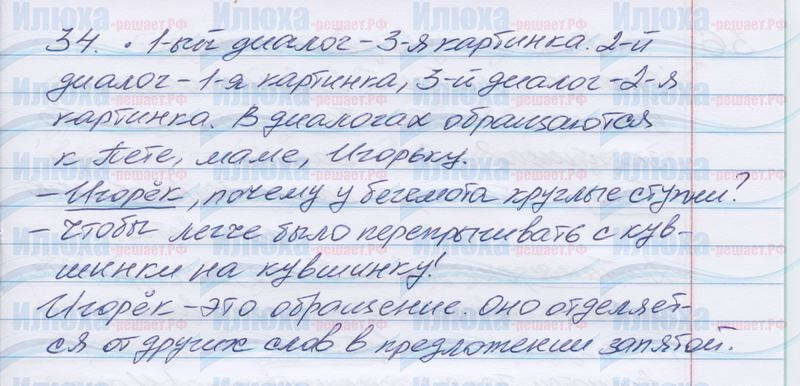 34. • 1-ый диалог – 3-я картинка. 2-й
диалог – 1-я картинка, 3-й диалог – 2-я
картинка. В диалогах обращаются
к Пете, маме, Игорьку.
– Игорёк, почему у бегемота круглые ступни?
– Чтобы легче было перепрыгивать с кув-
шинки на кувшинку!
Игорёк – это обращение. Оно отделяет-
ся от других слов в предложении запятой.
Илюха-решает.РФ